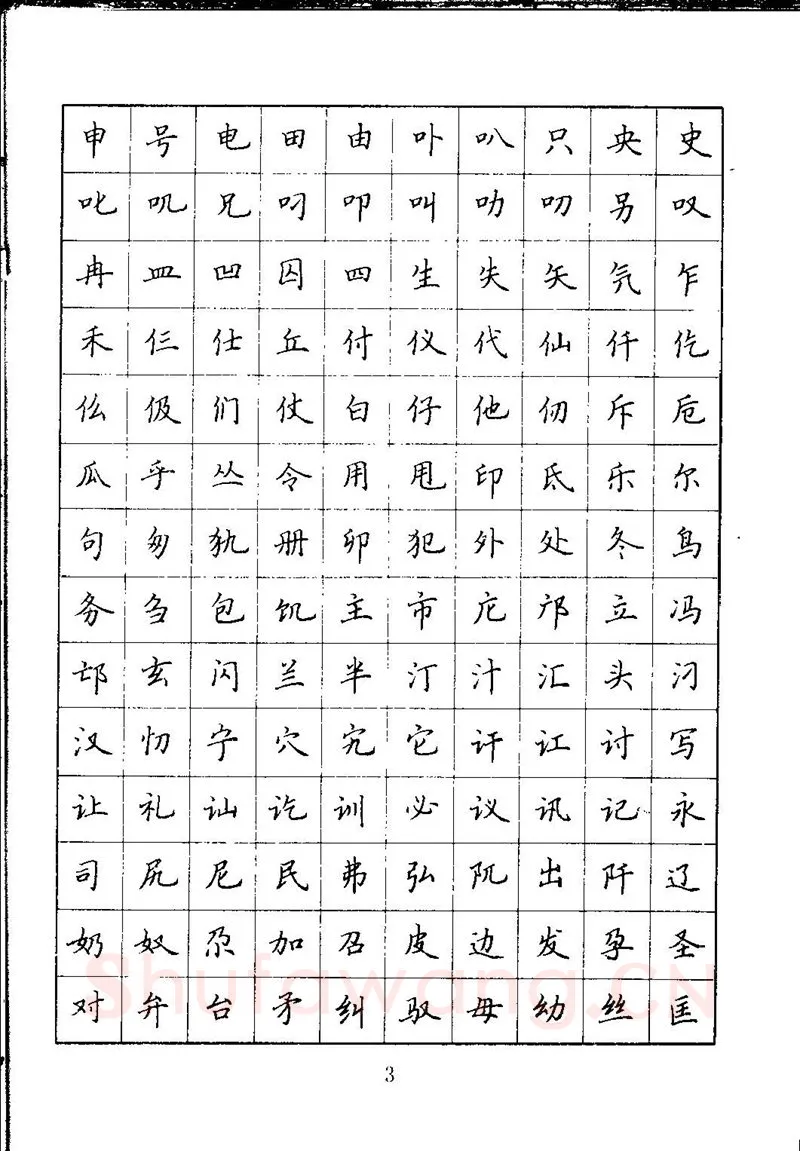 申 号 电 田 由 卟 叭 只 央 史
叱 叽 兄 叼 叩 叫 叻 叨 另 叹
冉 皿 凹 囚 四 生 失 矢 氕 乍
禾 仨 仕 丘 付 仪 代 仙 仟 仡
仫 伋 们 仗 白 仔 他 仞 斥 卮
瓜 乎 丛 令 用 甩 印 氐 乐 尔
句 匆 犰 册 卯 犯 外 处 冬 鸟
务 刍 包 饥 主 市 庀 邝 立 冯
邙 玄 闪 兰 半 汀 汁 汇 头 汈
汉 忉 宁 穴 宄 它 讦 讧 讨 写
让 礼 讪 讫 训 必 议 讯 记 永
司 尻 尼 民 弗 弘 阢 出 阡 辽
奶 奴 尕 加 召 皮 边 发 孕 圣
对 弁 台 矛 纠 驭 母 幼 丝 匡
Shufawang.CN
3